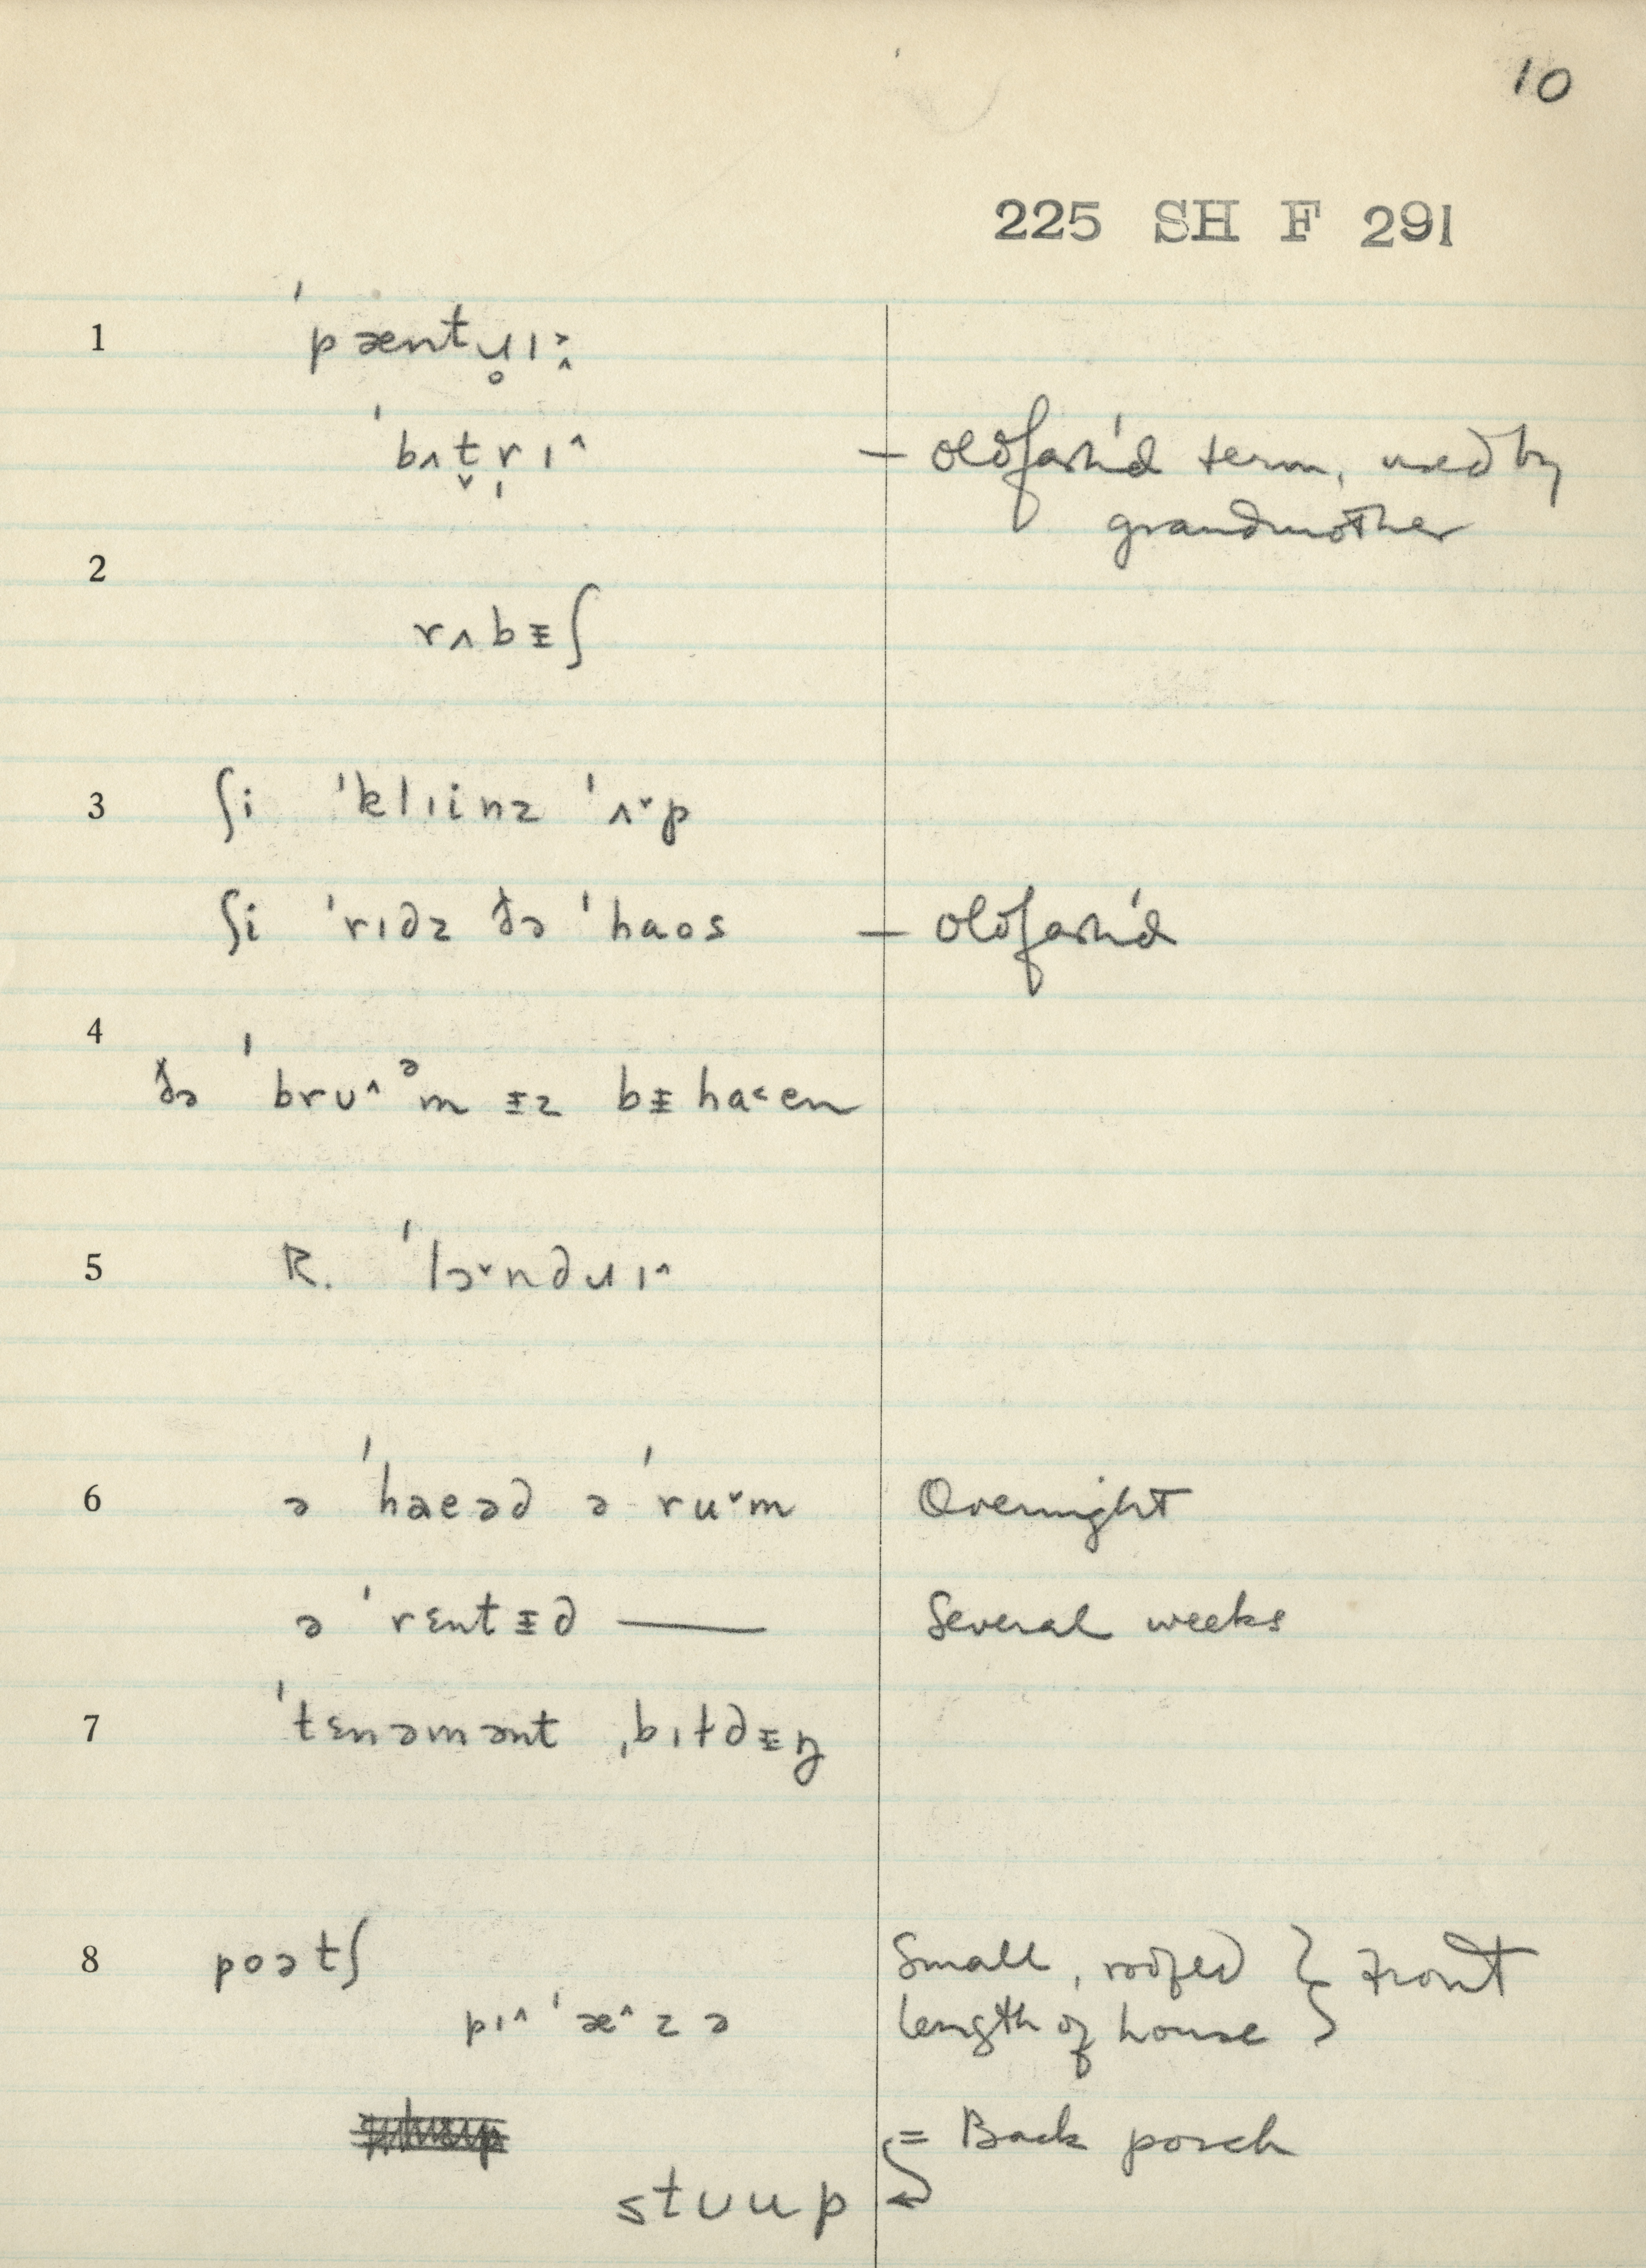 10
225 SH F 291
1 ˈpæntɹ̥ɪ˔˃
ˈbʌt̬r̩ɪ^ — oldfash'd term, used by
grandmother
2
rʌbᵻʃ
3 ʃi ˈklɪinz ˈʌ˅p
ʃi ˈrɪdz ðə ˈhaos — oldfash'd
4
ðə ˈbrʊ^ᵊm ᵻz bᵻha˂en
5 R. ˈlɔ˅ndɹɪ^
6 ə ˈhaeəd ə ˈru˅m Overnight
ə ˈrɛntᵻd —— Several weeks
7 ˈtɛnəmənt ˌbɪɫdᵻŋ
8 poətʃ Small, roofed } Front
pɪ^ ˈæ^zə length of house
= Back porch
stʊup